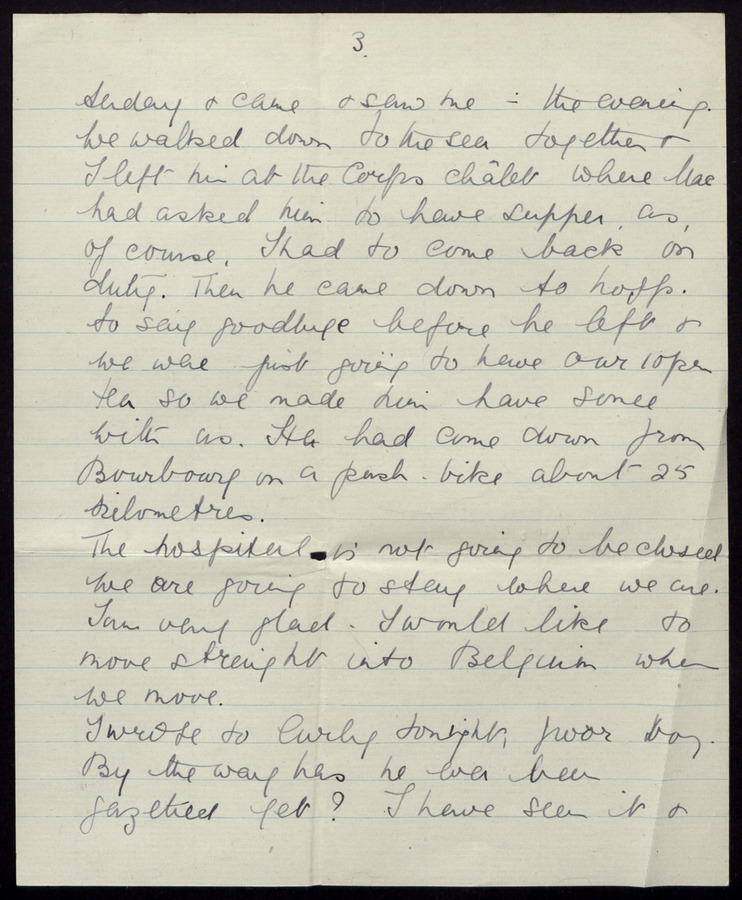 3.
Sunday & came & saw me - the evening.
We walked down to the sea together &
I left him at the Corps châlet where Mac
had asked him to have supper, as,
of course, I had to come back on
duty. Then he came down to hosp.
to say goodbye before he left &
we were just going to have our 10 pm
tea so we made him have some
with us. He had come down from
Bourbourg on a push-bike about 25
kilometres.
The hospital is not going to be closed
we are going to stay where we are.
I am very glad - I would like to
move straight into Belgium when
we move.
I wrote to Curly tonight, poor boy.
By the way has he ever been
gazetted yet? I have seen it &